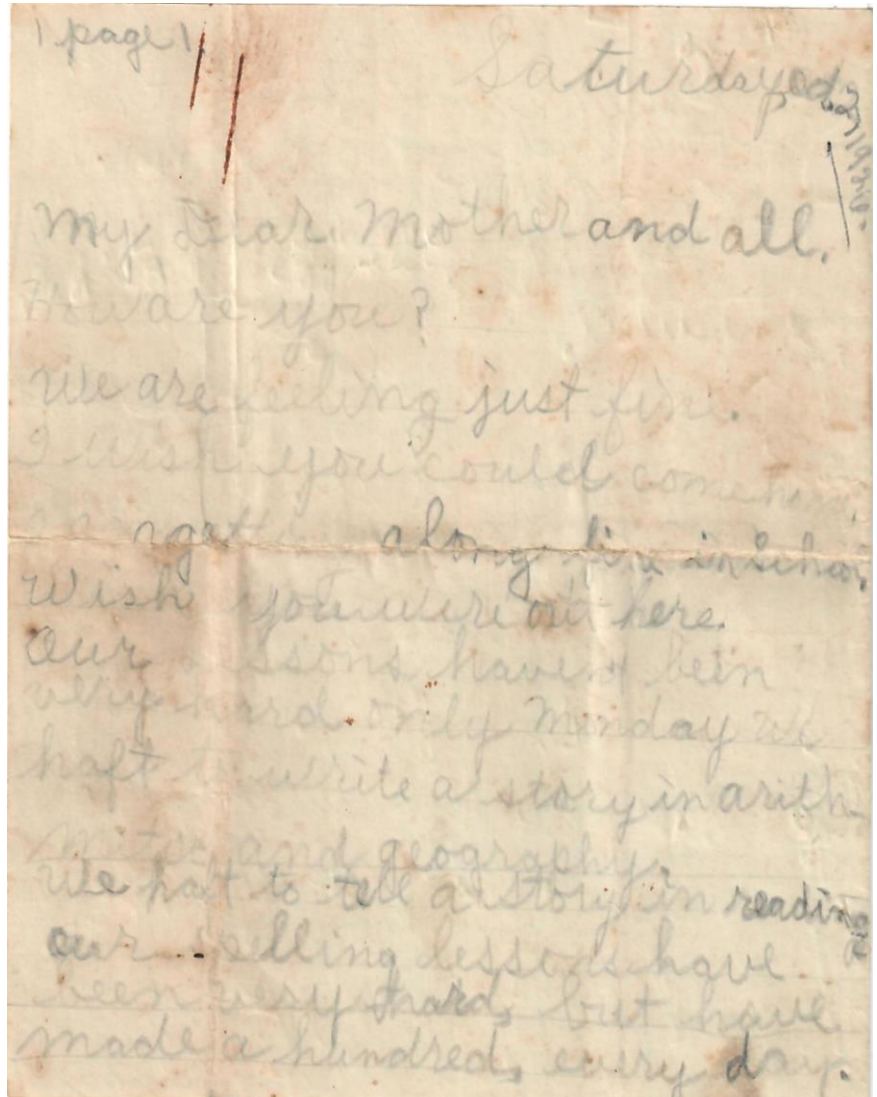 1 page 1
Saturday
My Dear Mother and all.
How are you?
We are feeling just fine.
I wish you could come
along fine in
Wish you were out here.
Our lessons havent been
very hard only Monday we
haft to write a story in arith-
and geography.
We haft to tell a story in reading
our spelling lessons have
been very hard, but have
made a hundred, every day.